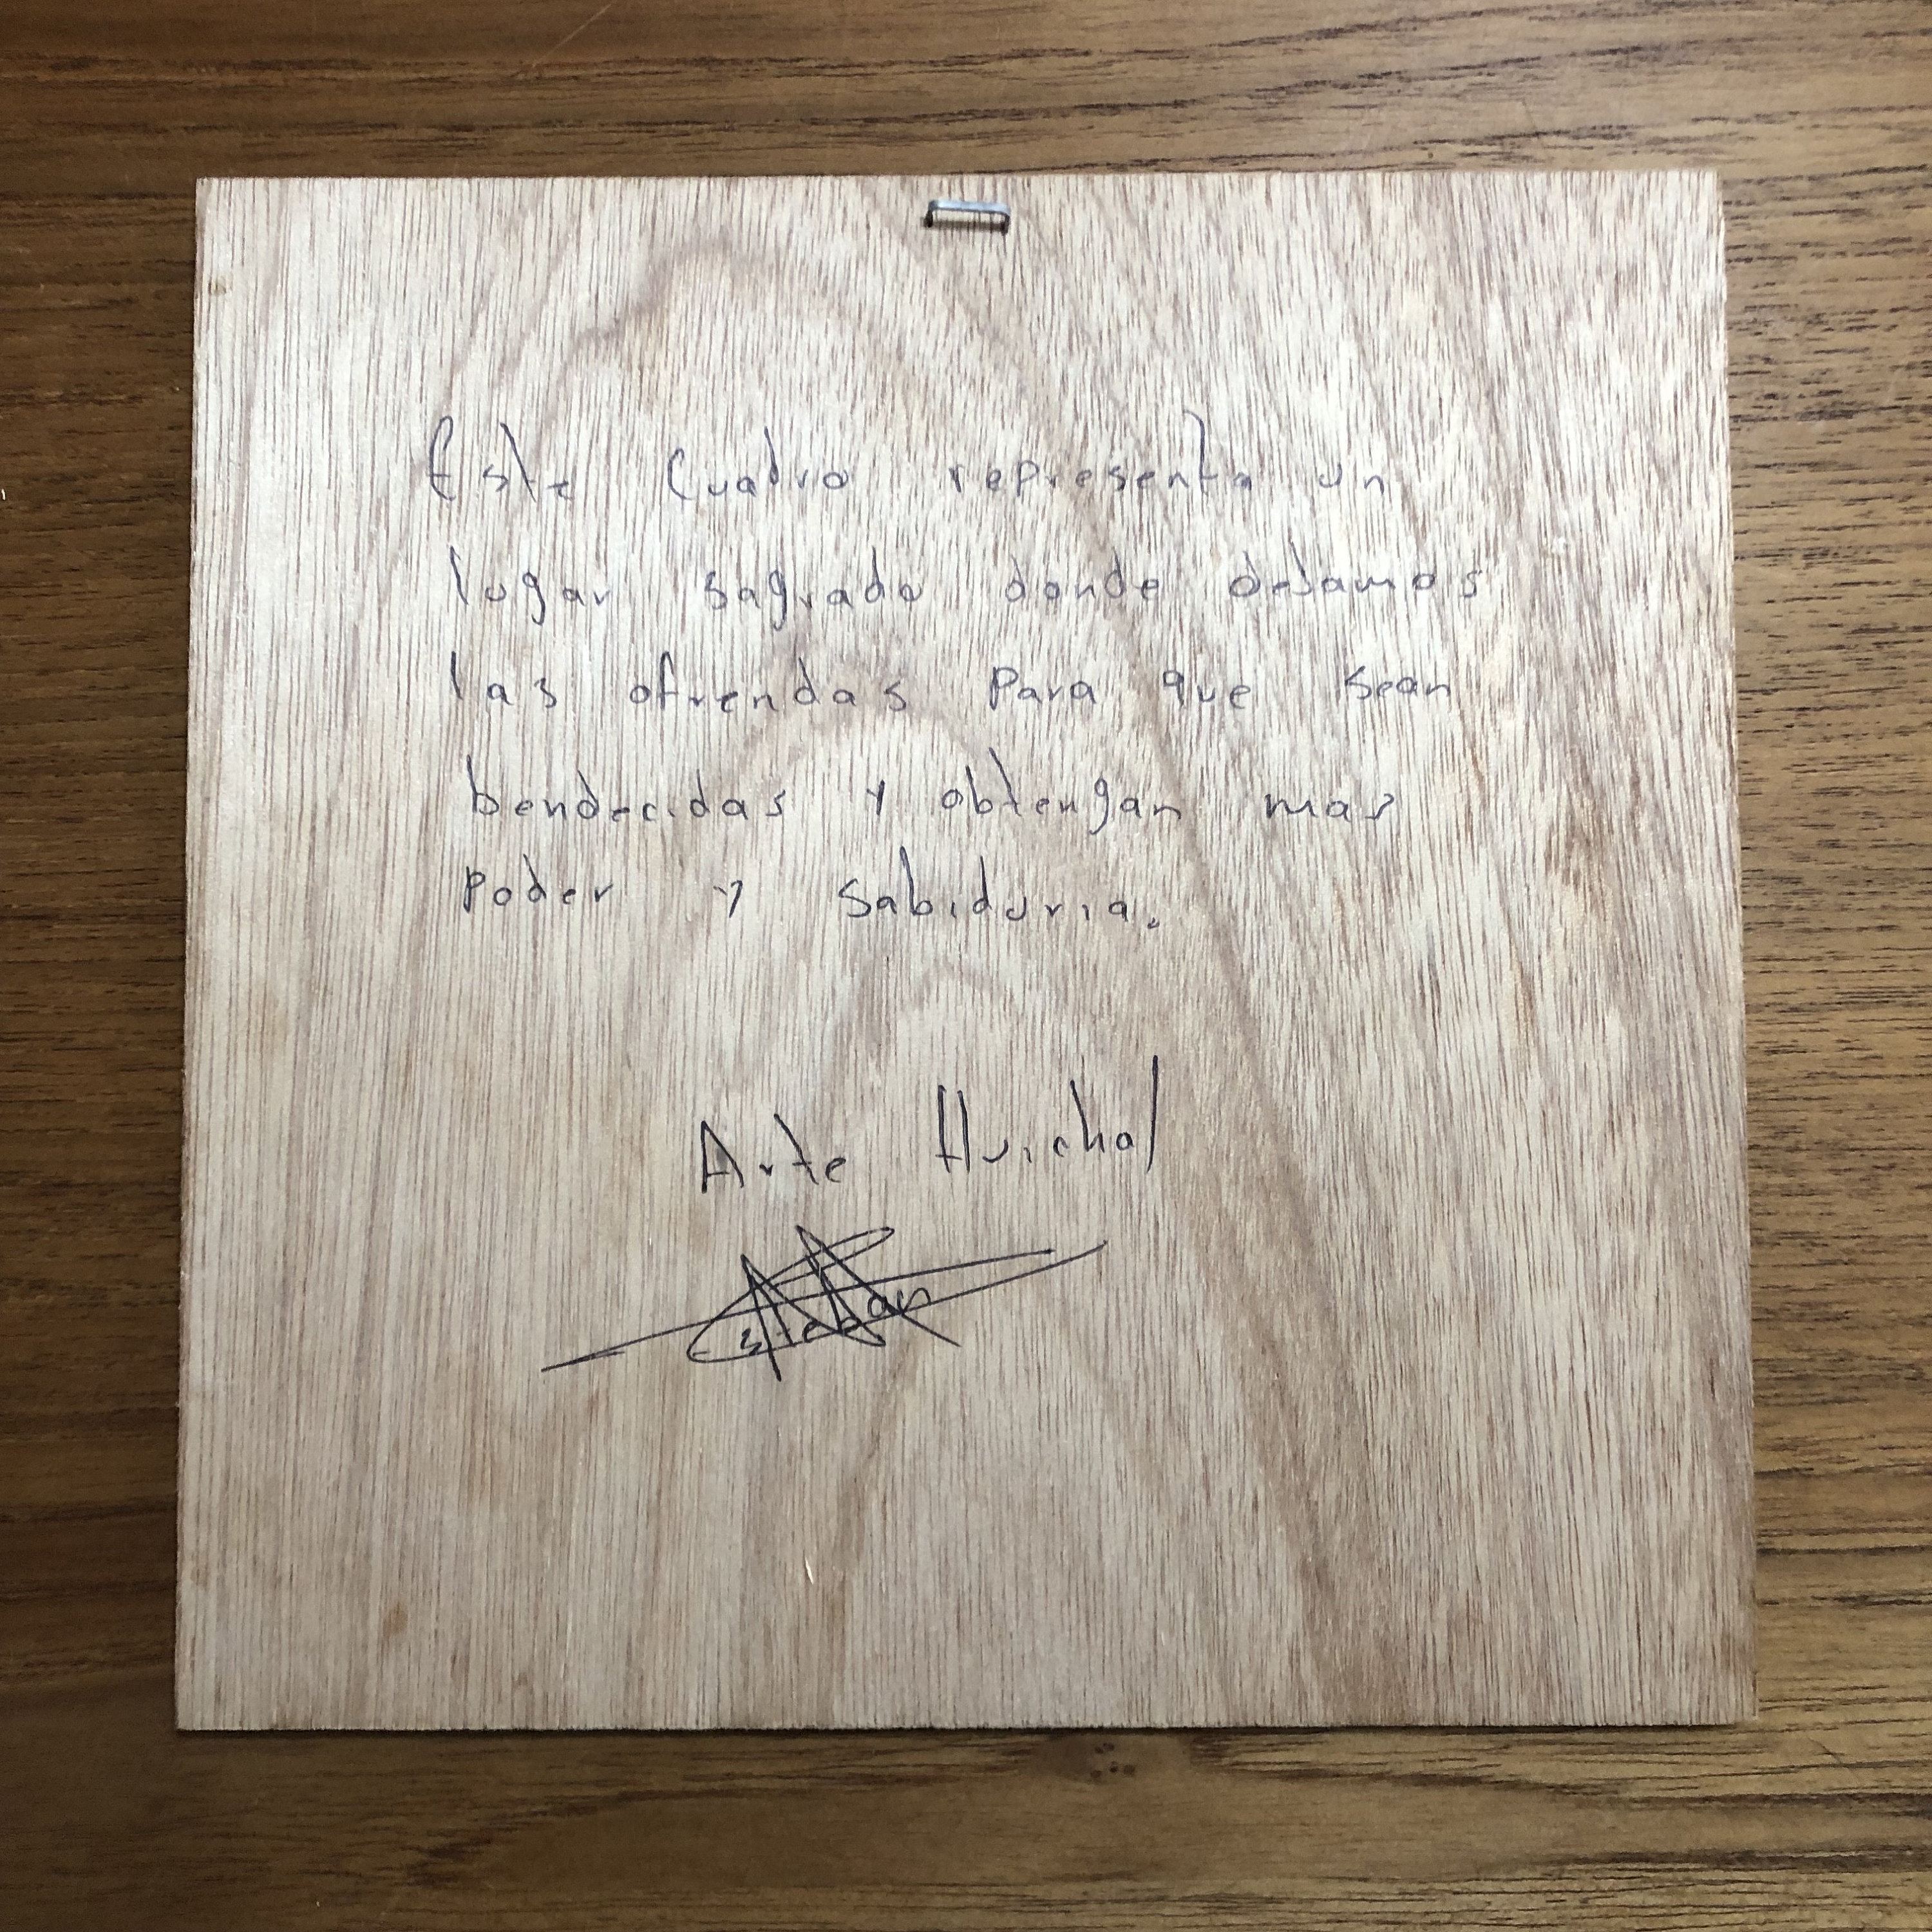 Este Cuadro representa un
lugar sagrado donde dejamos
las ofrendas Para que sean
bendecidas y obtengan mas
Poder y Sabiduria.
Arte Huichol
Esteban